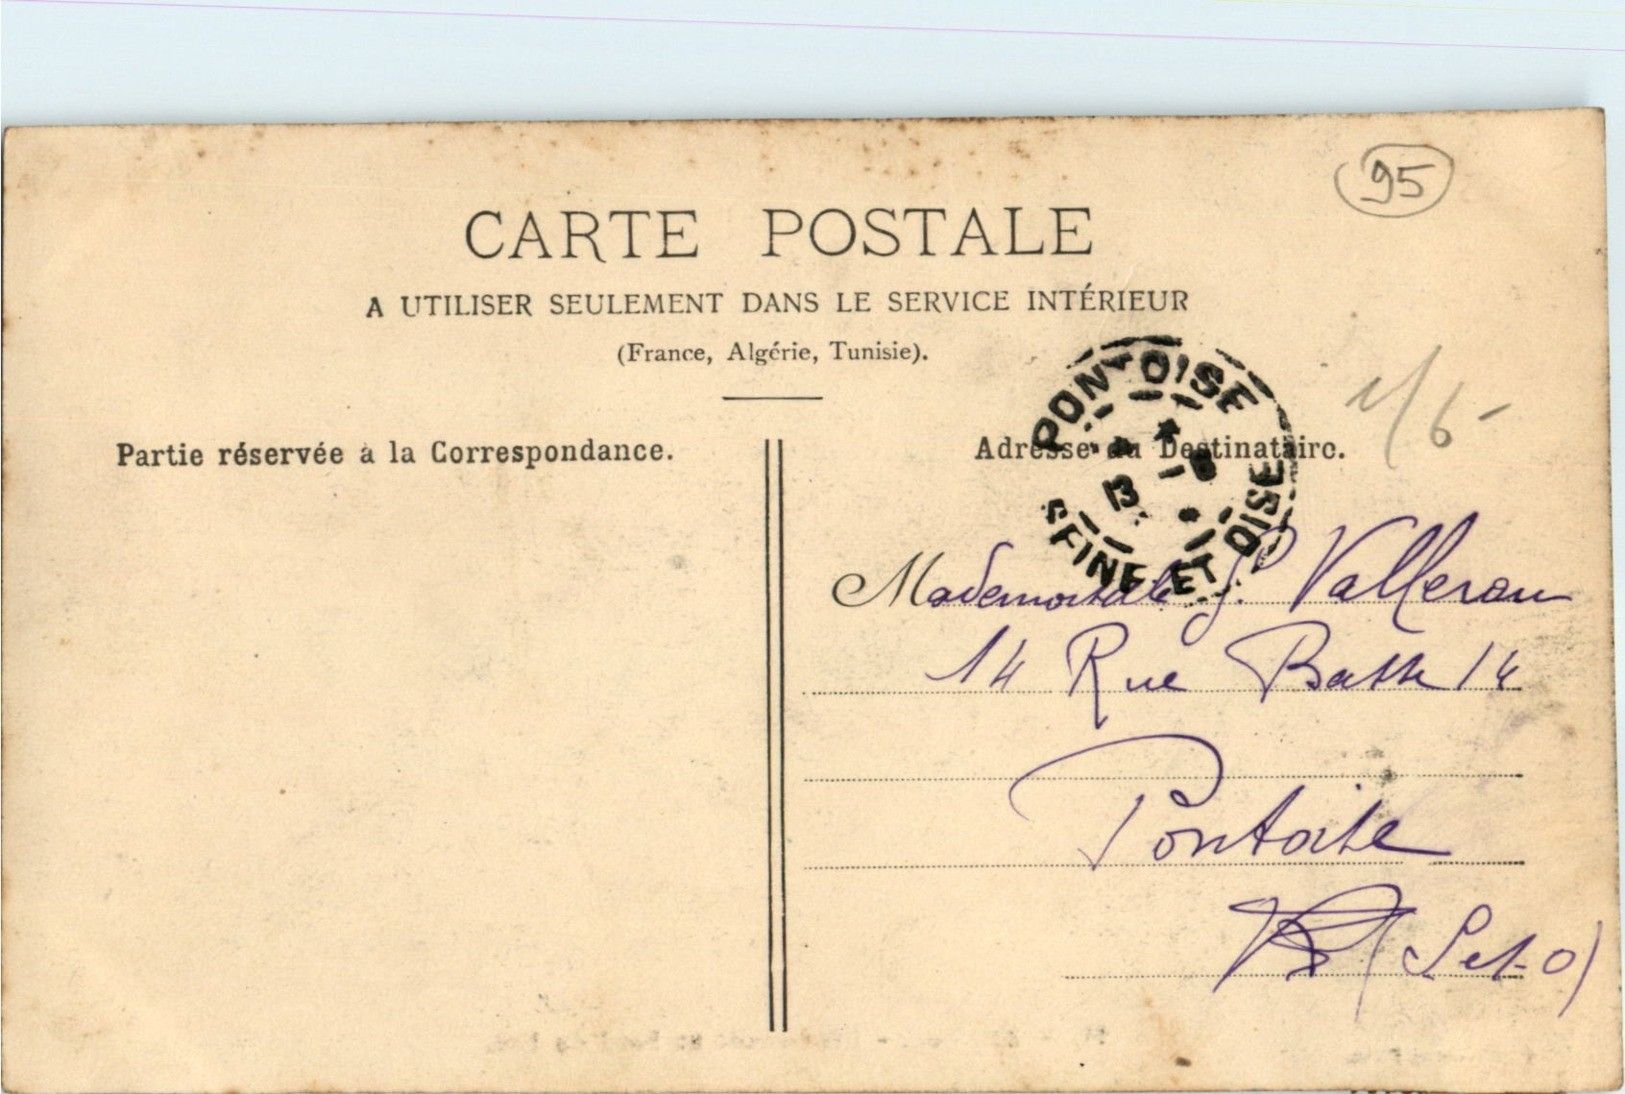 95
CARTE POSTALE
A UTILISER SEULEMENT DANS LE SERVICE INTÉRIEUR
(France, Algérie, Tunisie).
PONTOISE
SEINE ET OISE
13
Partie réservée à la Correspondance.
Adresse du Destinataire.
Mademoiselle S. Valleran
14 Rue Basse 14
Pontoise
(S et-O)